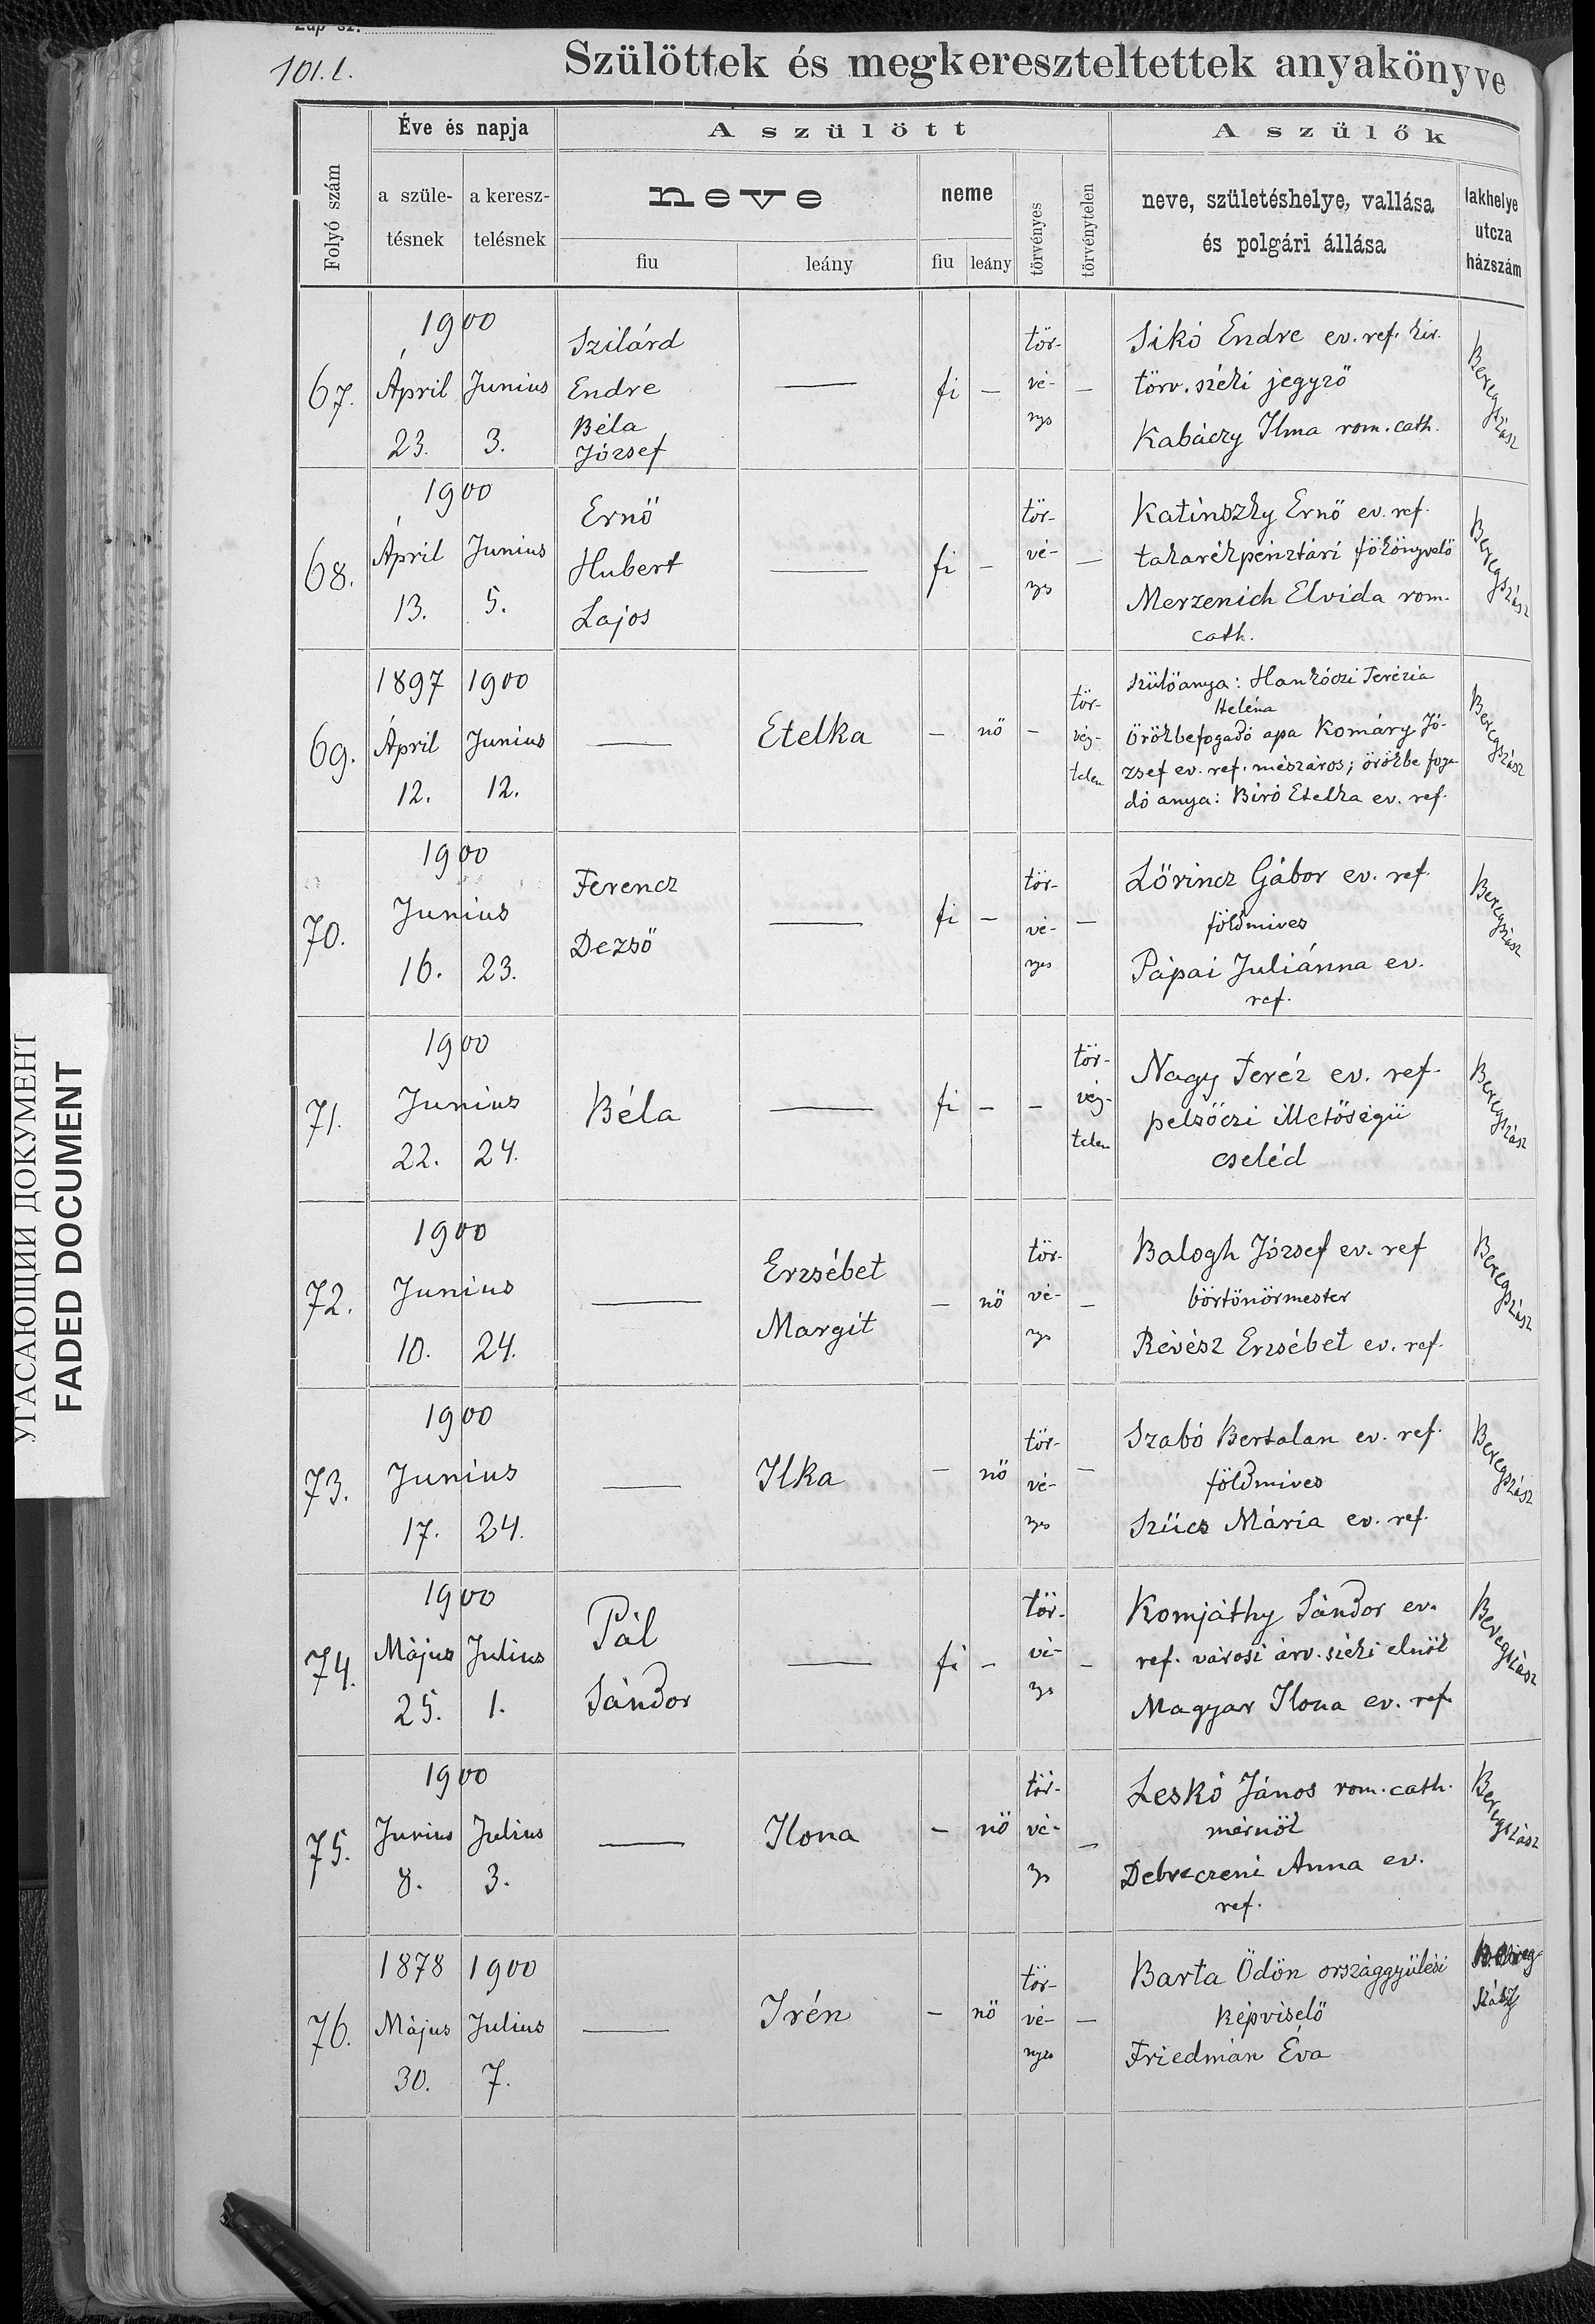 101.l.
Szülöttek és megkereszteltettek anyakönyve
Folyó szám
Éve és napja
a szüle-
tésnek
a keresz-
telésnek
A szülött
neve
fiu
leány
neme
fiu
leány
törvényes
törvénytelen
A szülők
neve, születéshelye, vallása
és polgári állása
lakhelye
utcza
házszám
67.
1900
Ápril
23.
Junius
3.
Szilárd
Endre
Béla
József
—
fi
—
tör-
vé-
nys
—
Sikó Endre ev. ref. kir.
törv. széki jegyző
Kabáczy Ilma rom. cath.
Beregszász
68.
1900
Ápril
13.
Junius
5.
Ernő
Hubert
Lajos
—
fi
—
tör-
vé-
nys
—
Katinszky Ernő ev. ref.
takarékpénztári főkönyvelő
Merzenich Elvida rom.
cath.
Beregszász
69.
1897
Ápril
12.
1900
Junius
12.
—
Etelka
—
nő
—
tör-
vég-
telen
Szülőanya: Hankóczi Terézia
Heléna
Örökbefogadó apa Komáry Jó-
zsef ev. ref. mészáros; örökbe foga
dó anya: Biró Etelka ev. ref.
Beregszász
70.
1900
Junius
16.
23.
Ferencz
Dezső
—
fi
—
tör-
vé-
nyes
—
Lőrincz Gábor ev. ref.
földmives
Pápai Juliánna ev.
ref.
Beregszász
71.
1900
Junius
22.
24.
Béla
—
fi
—
—
tör-
vég-
telen
Nagy Teréz ev. ref.
pelsőczi illetőségü
cseléd
Beregszász
72.
1900
Junius
10.
24.
—
Erzsébet
Margit
—
nő
tör-
vé-
nys
—
Balogh József ev. ref
börtönörmester
Révész Erzsébet ev. ref.
Beregszász
73.
1900
Junius
17.
24.
—
Ilka
—
nő
tör-
vé-
nys
—
Szabó Bertalan ev. ref.
földmives
Szücs Mária ev. ref.
Beregszász
74.
1900
Május
25.
Julius
1.
Pál
Sándor
—
fi
—
tör-
vé-
nys
—
Komjáthy Sándor ev.
ref. városi árv. széki elnök
Magyar Ilona ev. ref.
Beregszász
75.
1900
Junius
8.
Julius
3.
—
Ilona
—
nő
tör-
vé-
nys
—
Leskó János rom. cath.
mérnök
Debreczeni Anna ev.
ref.
Beregszász
76.
1878
Május
30.
1900
Julius
7.
—
Irén
—
nő
tör-
vé-
nyes
—
Barta Ödön országgyülési
képviselő
Friedmán Éva
УГАСАЮЩИЙ ДОКУМЕНТ
FADED DOCUMENT